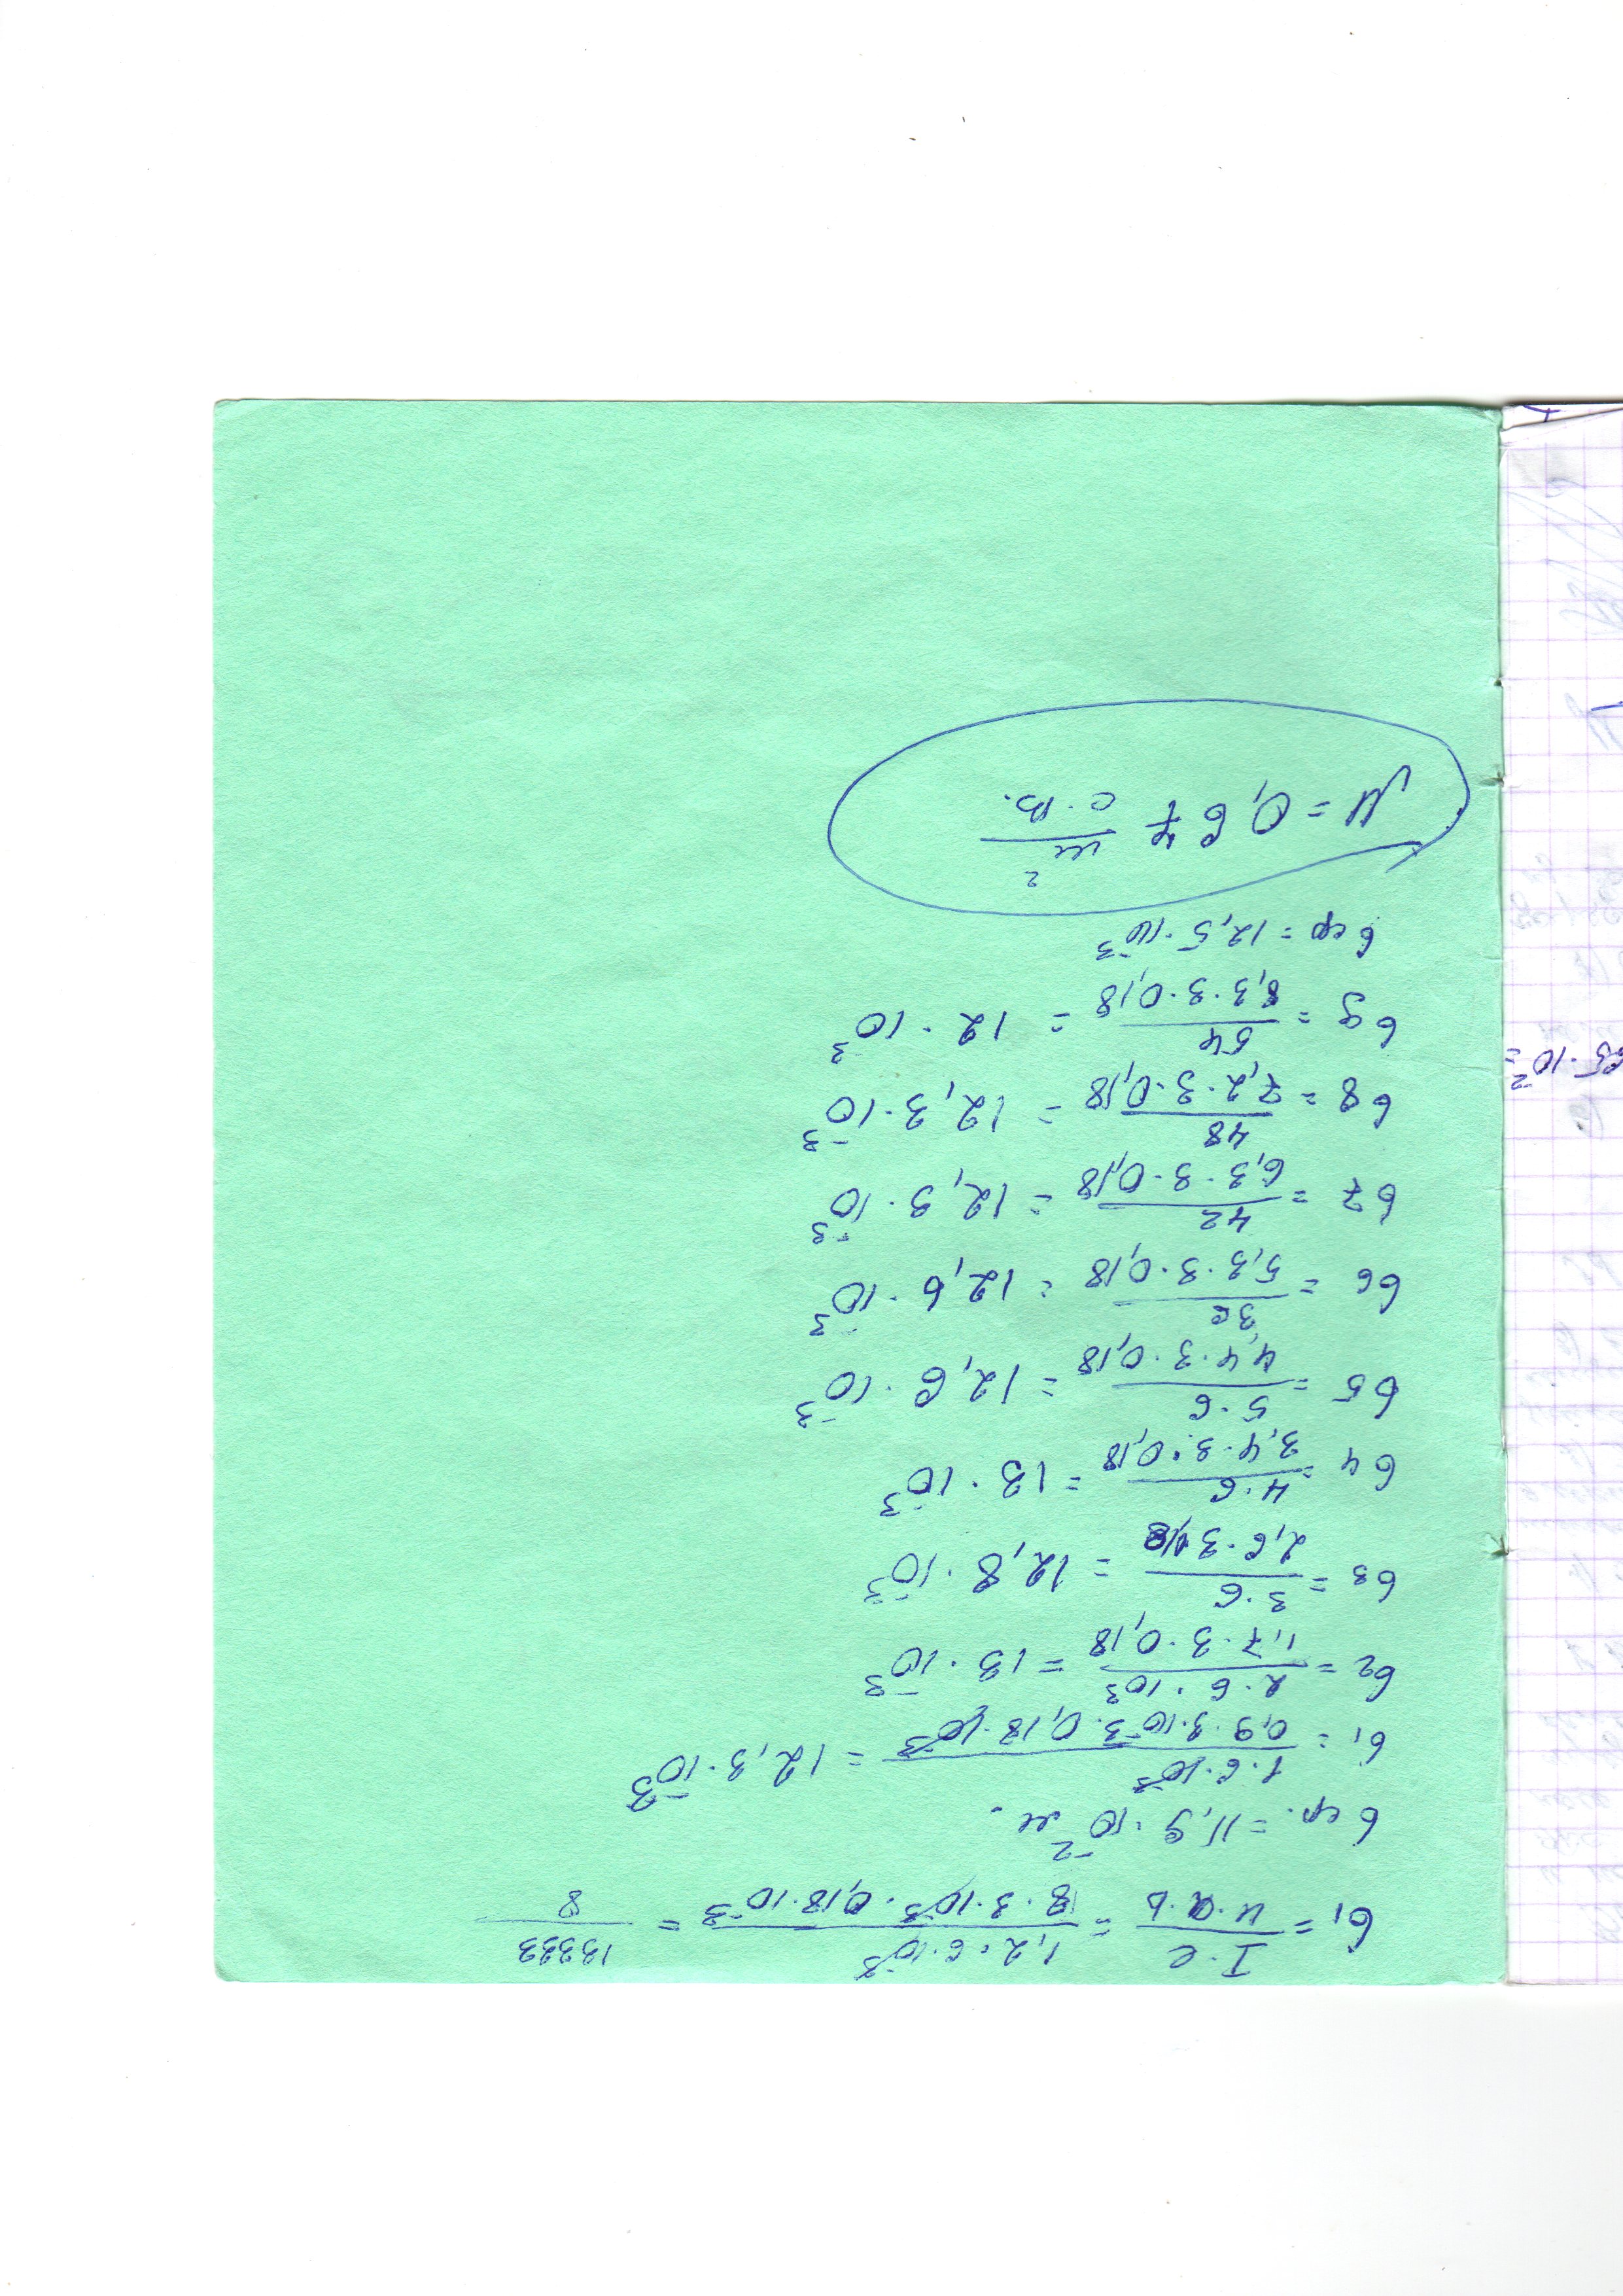 σ₁ = I·l / u·a·b = 1,2·6·10⁻³ / 18·3·10⁻³·0,18·10⁻³ = 13333 / 8
σ ср. = 11,9·10⁻² м.
σ₁ = 1·6·10⁻³ / 0,9·3·10⁻³·0,18·10⁻³ = 12,3·10⁻³
σ₂ = 2·6·10³ / 1,7·3·0,18 = 13·10⁻³
σ₃ = 3·6 / 2,6·3·0,18 = 12,8·10⁻³
σ₄ = 4·6 / 3,4·3·0,18 = 13·10⁻³
σ₅ = 5·6 / 4,4·3·0,18 = 12,6·10⁻³
σ₆ = 36 / 5,3·3·0,18 = 12,6·10⁻³
σ₇ = 42 / 6,3·3·0,18 = 12,3·10⁻³
σ₈ = 48 / 7,2·3·0,18 = 12,3·10⁻³
65·10⁻² =
σ₉ = 54 / 8,3·3·0,18 = 12·10⁻³
σ ср = 12,5·10⁻³
М = 0,67 м² / с·В.